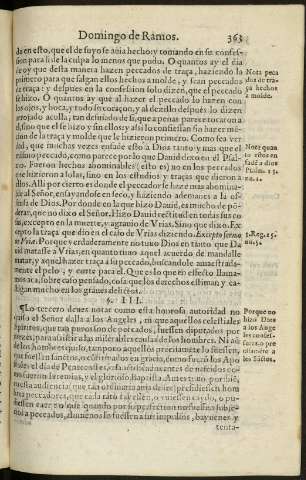 Domingo de Ramos. 363
da en esto, que el de suyo se auia hecho: y tomando en su confes-
sion para si de la culpa lo menos que pudo. O quantos ay el dia
de oy que desta manera hazen peccados de traça, haziendo la
para que salgan ellos hechos a molde, y sean peccados
de traça: y despues en la confession solo dizen, que el peccado
se hizo. O quantos ay que al hazer el peccado lo hazen con
los ojos, y boca, y todo su coraçon, y al dezillo despues lo dizen
arrojado acullá, tan desuiado de si, que a penas parece tocaron a
el, sino que el se hizo y sin ellos: y assi lo confiessan sin hazer men-
cion de la traça y molde que le hizieron primero. Como sea ver-
dad, que muchas vezes enfade esto a Dios tanto y mas que el
mismo peccado, como parece por lo que Dauid dixo en el Psal-
mo. Fueron hechos abominables (esto es) no en los peccados
se hizieron a solas, sino en los estudios y traças que dieron a
ellos. Alli por cierto es donde el peccador se haze mas abomina-
ble al Señor, ensayandose en seco, y haziendo ademanes a la of-
fensa de Dios. Por donde en la que hizo Dauid, es mucho de pō-
derar, que no dixo el Señor. Hizo Dauid rectitud en todas sus co-
sas, excepto en la muerte, y agrauio de Vrias. Sino que dixo. Ex-
cepto la traça que dio en el caso de Vrias diziendo. Excepto sermo
Vriæ. Porque verdaderamente no tuuo Dios en tanto que Da
uid matasse a Vrias, en quanto tuuo aquel acuerdo de mandalle
matar, y aquel hazer traça a los peccados, buscandole
mente el pelo, y corte para el. Que es lo que en effecto llama-
mos acá, sobre caso pensado, cosa que los derechos estiman, y ca-
stigan mucho en los graues delictos.
§. III.
Lo tercero deues notar como esta honrosa autoridad no
quiso el Señor dalla a los Angeles, ni que aquellos celestiales
spiritus, que tan puros son de peccados, fuessen diputados por
para assistir a las miserables caulas de los hombres. Ni aū
de los hombres quiso, tampoco aquellos precisamente lo fuessen
que fuessen sanctos, o confirmados en gracia, como fueron los Apo
stoles el dia de Pentecostes, o santificados de nacidos co-
mo fueron Ieremias, y el glorioso Baptista. Antes tuuo por bié,
que la audiencia que tan ordinariamente los hom-
bres peccadores, que tal vez o fuessen caydo, o pu-
diessen caer en lo que quando por si
do a peccados, alomenos lo fuessen a sus impulsos, bayuenes, y
tenta-
Nota peca
dos de tra-
ça hechos
a molde.
Nota quan
to estos en
fadē a dios
Psalm. 13.
nu. 1.
3. Reg. 15.
nu. 5.
Porque no
hizo Dios
a los Ange
les confes-
sores, o pre
cisamēte a
los Sātos.